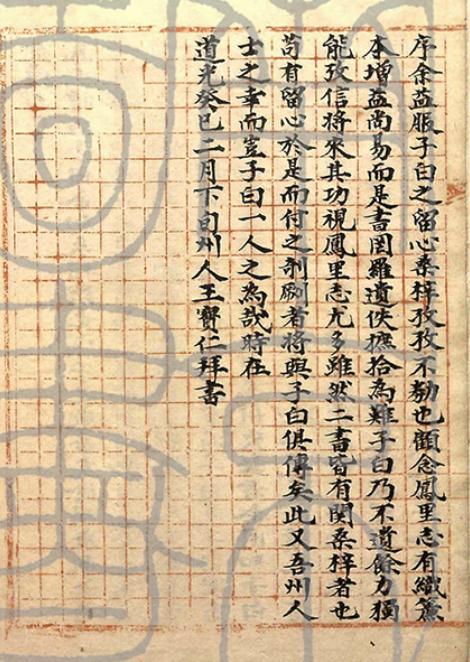 序余益服子白之留心桑梓孜孜不勌也顧念鳳里志有織簾
本增益尚易而是書罔羅遺佚摭拾為難子白乃不遺餘力獨
能攷信將來其功視鳳里志尤多雖然二書皆有関桑梓者也
苟有留心於是而付之剞劂者將與子白俱傳矣此又吾州人
士之幸而豈子白一人之為哉時在
道光癸巳二月下旬州人王寶仁拜書